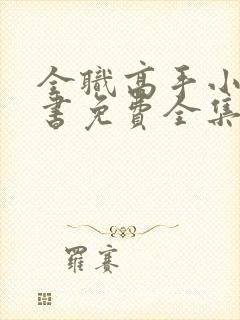 全職高手小
書免費全集
羅賽